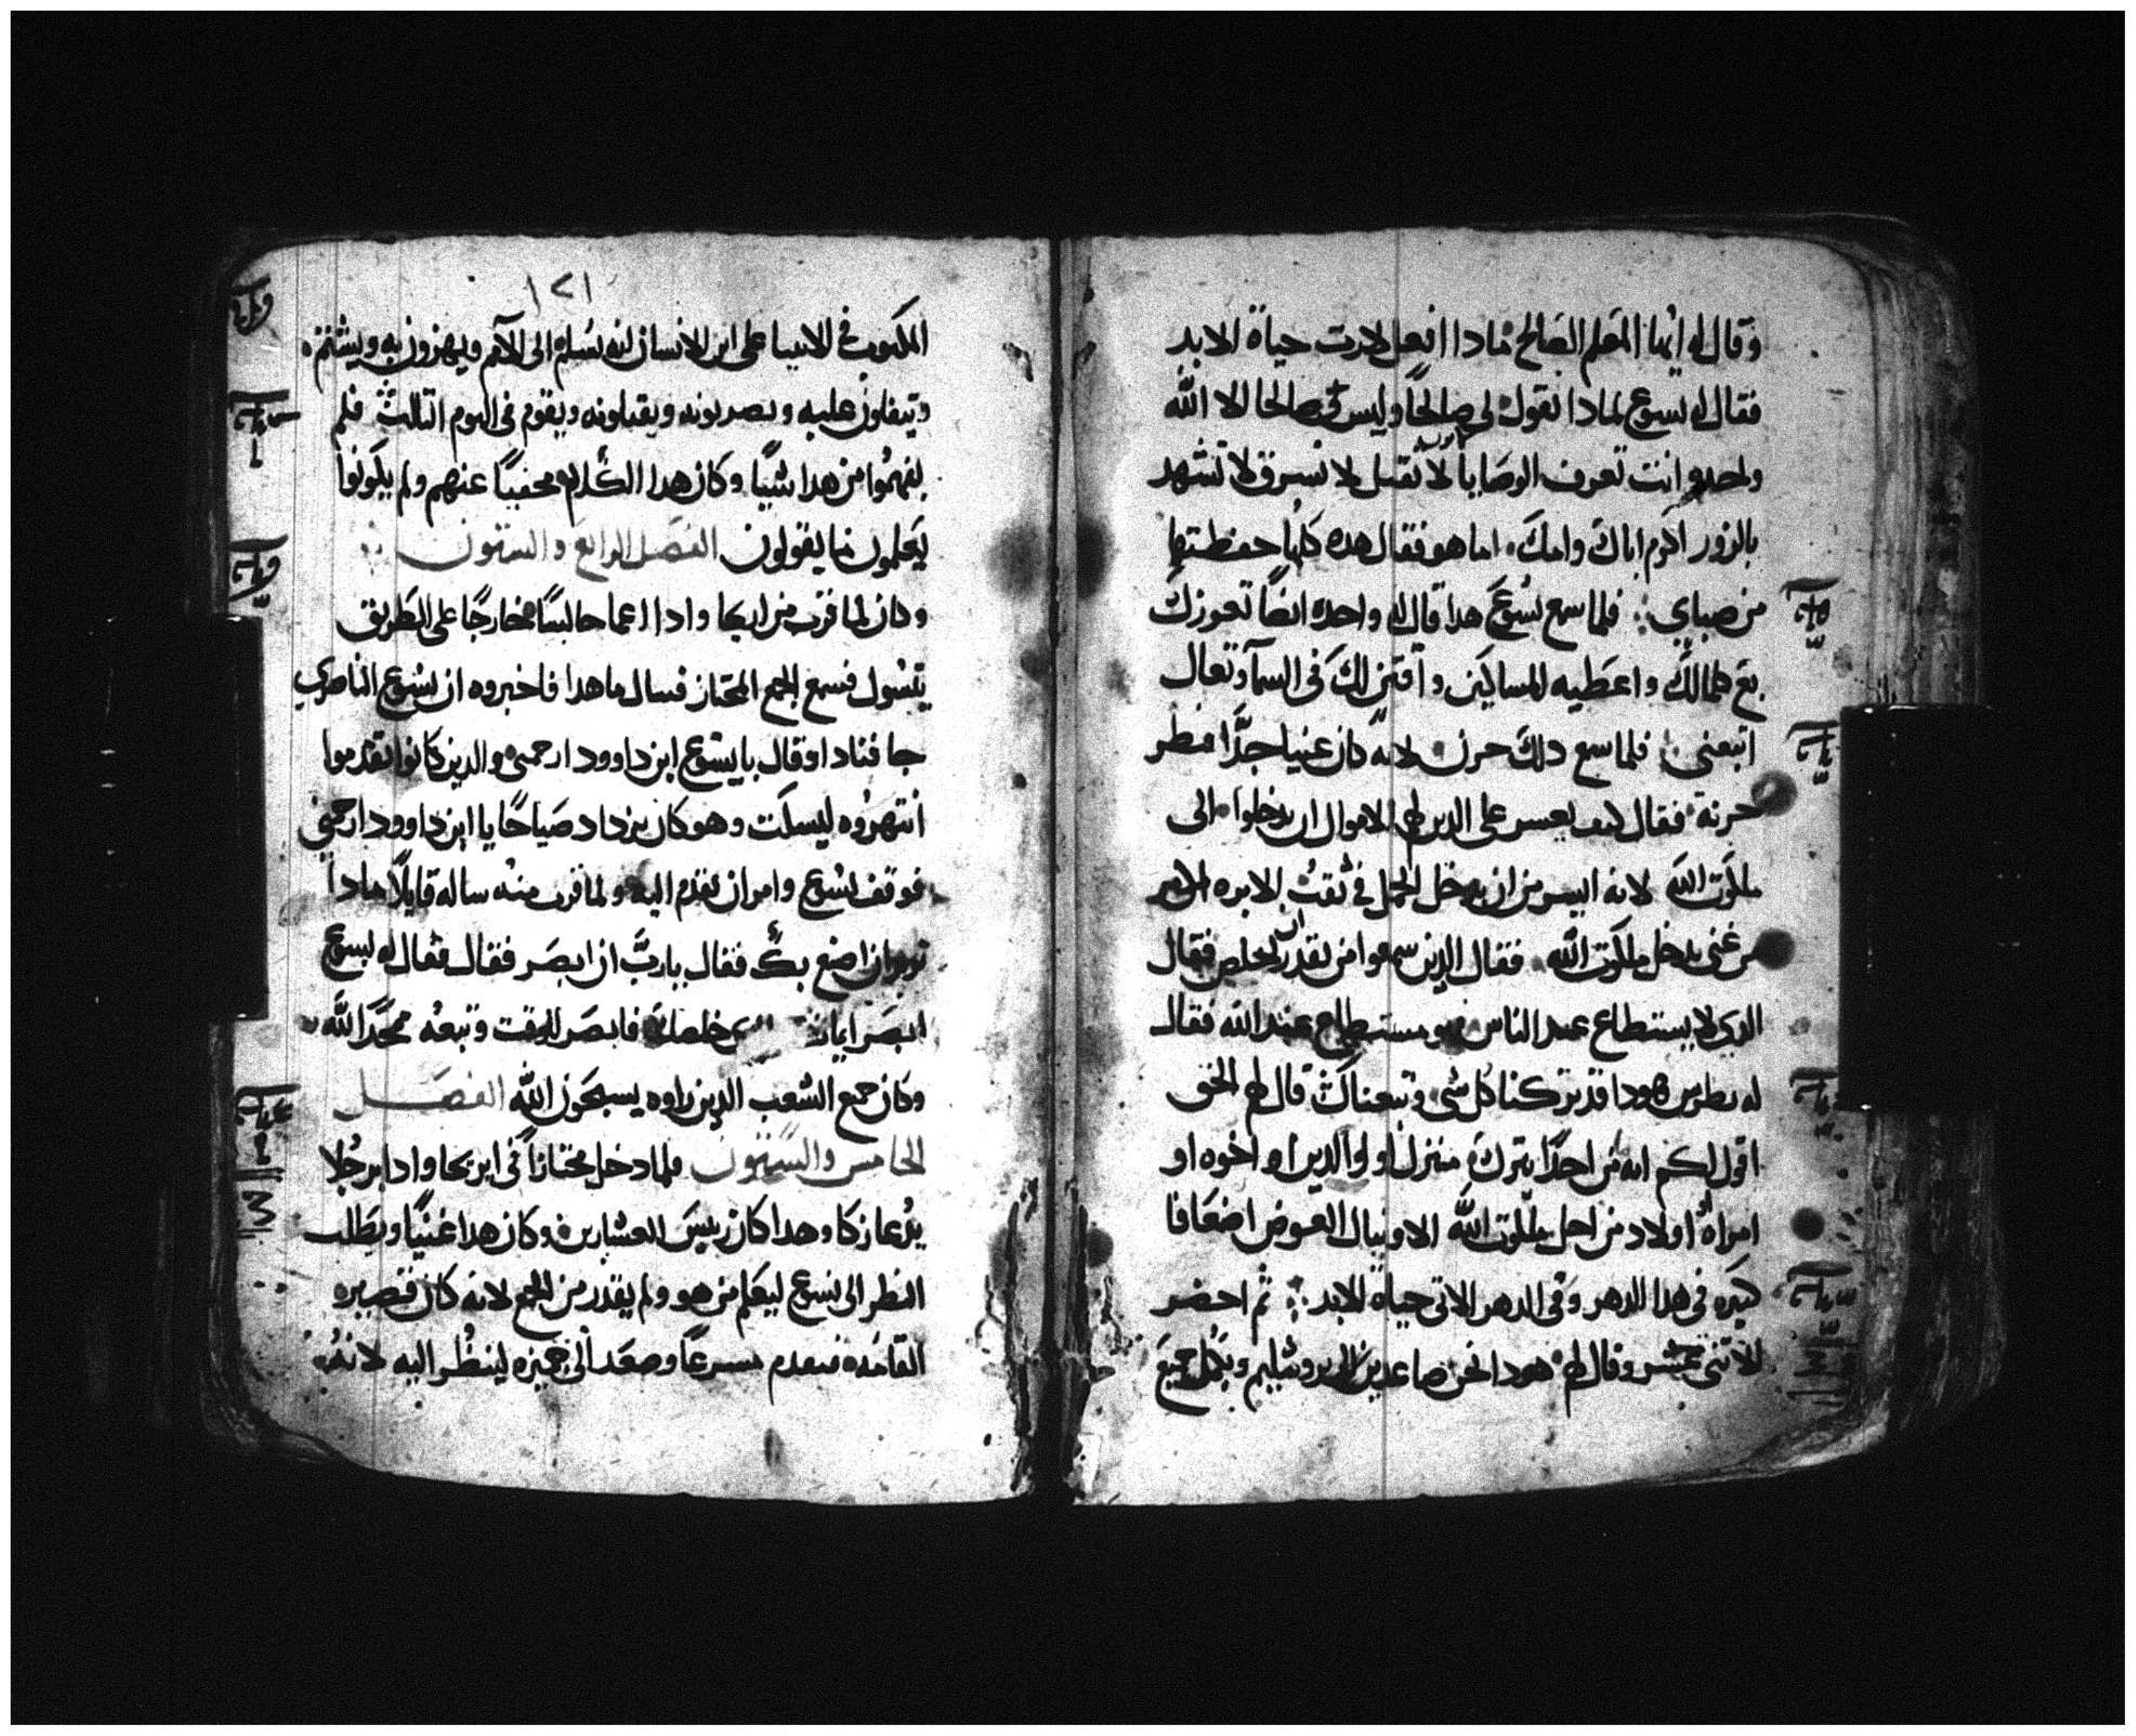 وقال له ايها المعلم الصالح مادا افعل لارت حياة الابد
فقال له يسوع لمادا تقول لي صالحا وليس صالحا الا الله
واحد انت تعرف الوصايا لا تقتل لا تسرق لا تشهد
بالزور اكرم اباك وامك اما هو فقال هده كلها حفظتها
من صباي فلما سمع يسوع هدا قال له واحده ايضا تعوزك
بع كلمالك واعطيه للمساكين واقتني لك في السما وتعال
اتبعني فلما سمع دلك حزن لانه كان غنيا جدا فنظر
حزنه فقال كيف يعسر على الدين لهم الاموال ان يدخلوا الى
ملكوت الله لانه ايسر من ان يدخل الجمل في ثقب الابره
من غني يدخل ملكوت الله فقال الدين سمعوا من يقدر ان يخلص فقال
الدي لا يستطاع عند الناس هو مستطاع عند الله فقال
له بطرس هودا قد تركنا كل شي وتبعناك قال لهم الحق
اقول لكم انه من احد يترك منزل او والدين او اخوه او
امراه او اولاد من اجل ملكوت الله الا وينال العوض اضعافا
كثيره في هدا الدهر وفي الدهر الاتي حياه الابد ثم احضر
الاثني عشر وقال لهم هودا نحن صاعدين الى يروشليم ويكمل جميع
١٢١
المكتوب في الانبيا على ابن الانسان لانه يسلم الى الامم ويهزون به ويشتم
وتيفلون عليه ويضربونه ويقتلونه ويقوم في اليوم التالت فلم
يفهموا من هدا شيا وكان هدا الكلام مخفيا عنهم ولم يكونوا
يعلمون ما يقولون الفصل الرابع والستون
وكان لما قرب من اريحا وادا اعما جالسا خارجا على الطريق
يتسول فسمع الجمع المجتاز فسال ما هدا فاخبروه ان يسوع الناصري
جا فنادا وقال يا يسوع ابن داوود ارحمني والدين كانوا تقدموا
انتهروه ليسكت وهو كان يزداد صياحا يا ابن داوود ارحمني
فوقف يسوع وامر ان يقدم اليه ولما قرب منه ساله قايلا مادا
تريد ان اصنع بك فقال يا رب ان ابصر فقال فقال له يسوع
ابصر ايمانك خلصك فابصر للوقت وتبعه مجدا لله
وكان جميع الشعب الدين راوه يسبحون الله الفصل
الخامس والستون فلما دخل مجتازا في اريحا وادا برجلا
يدعا زكا وهدا كان رييس العشارين وكان هدا غنيا ويطلب
النظر الى يسوع ليعلم من هو ولم يقدر من الجمع لانه كان قصيره
القامه فتقدم مسرعا وصعد الى جميزه لينظر اليه لانه